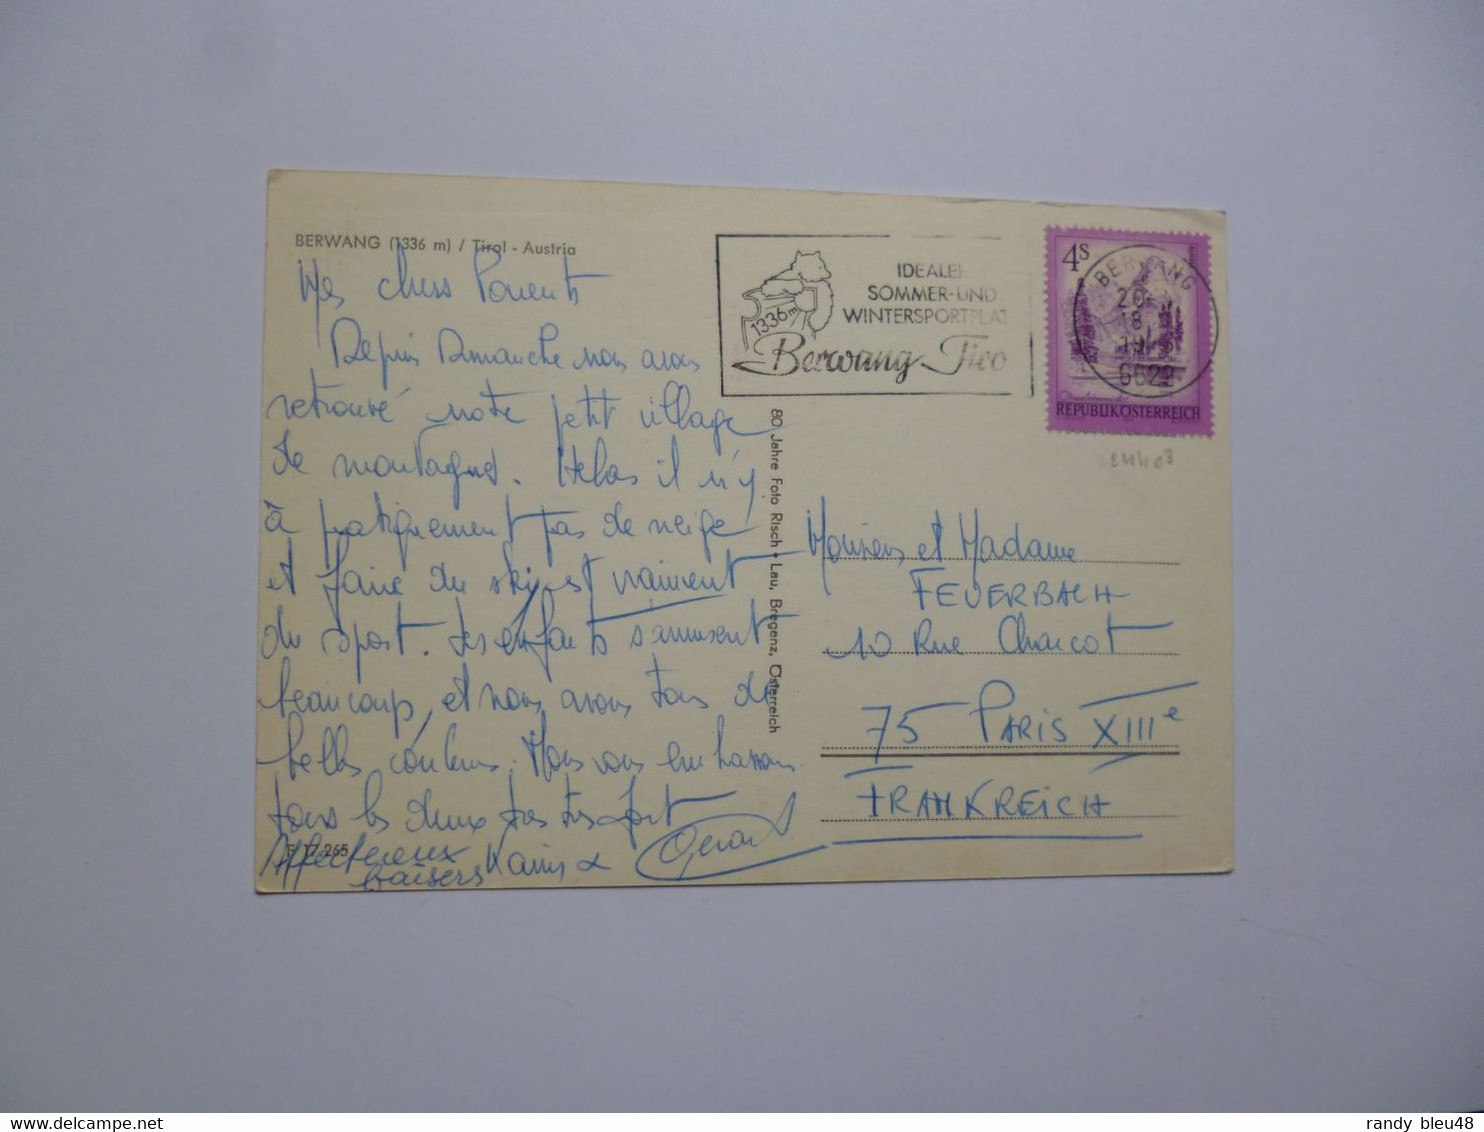 BERWANG (1336 m) / Tirol - Austria
Mes chers Parents
Depuis Dimanche nous avons
retrouvé notre petit village
de montagne. Helas il n'y
a pratiquement pas de neige
et faire du ski est vraiment
du sport. Les enfants s'amusent
beaucoup, et nous avons tous de
belles couleurs. Nous vous embrassons
tous les deux très très fort
Affectueux
baisers Karin & Gérard
F 17 265
80 Jahre Foto Risch - Lau, Bregenz, Österreich
1336m
IDEALER
SOMMER-UND
WINTERSPORTPLAT
Berwang Tiro
4s
REPUBLIKÖSTERREICH
BERWANG
20
18
19
6622
Monsieur et Madame
FEUERBACH
10 Rue Charcot
75 PARIS XIIIe
FRANKREICH
randy bleu48